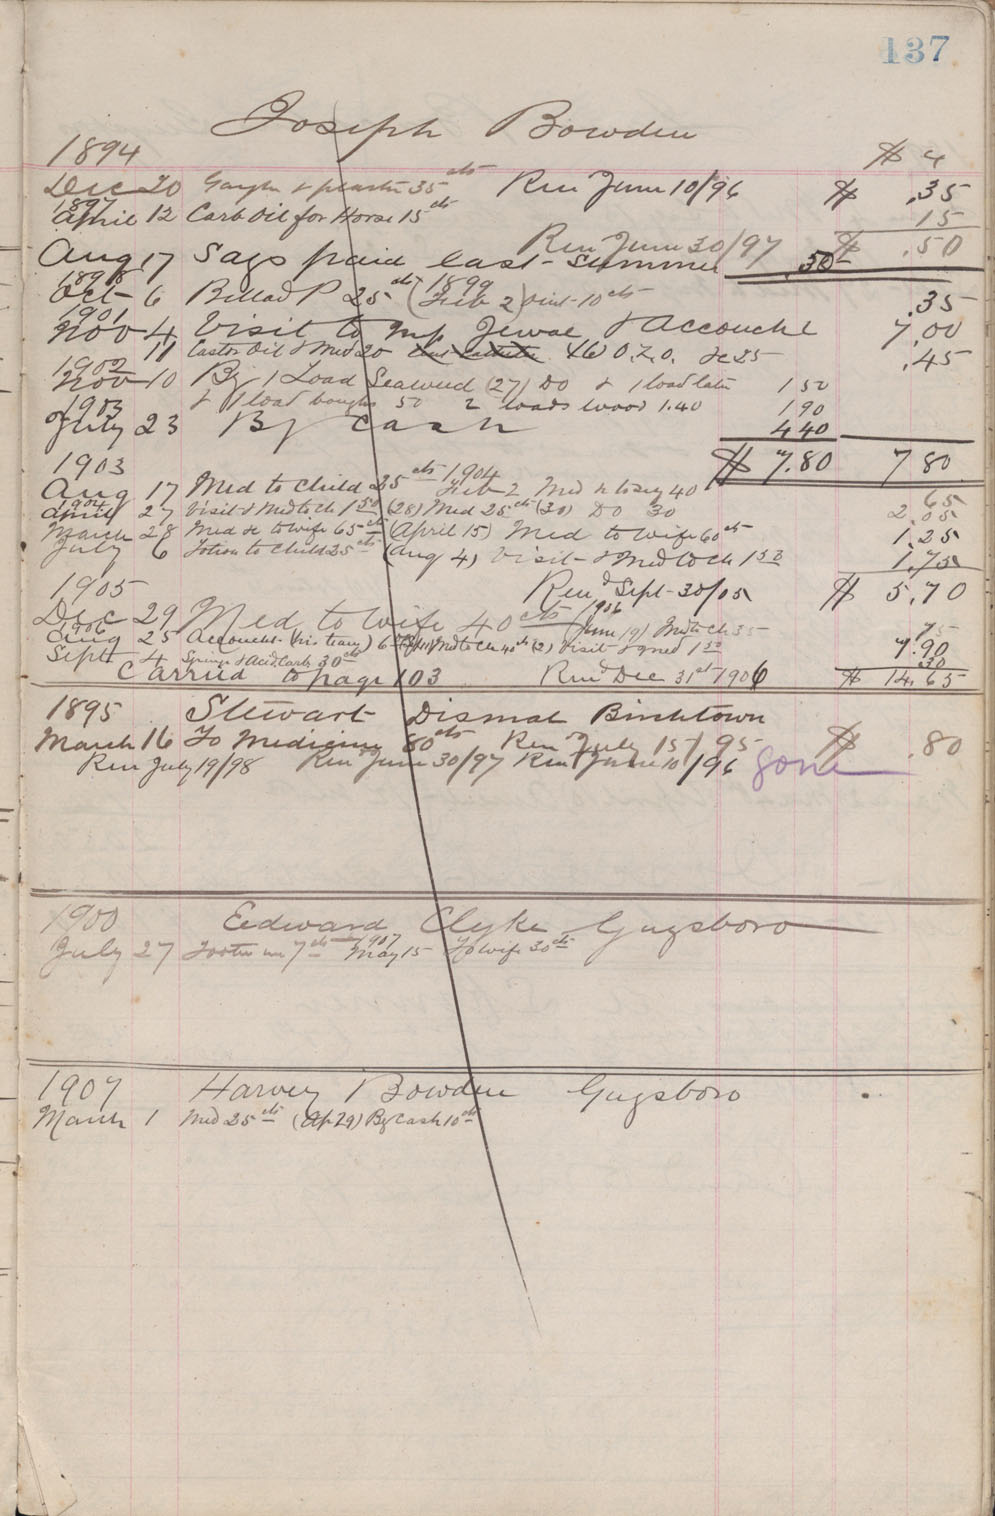 137
Joseph Bowden
1894 $ 4
Dec 20 & plaster 35 cts Ren June 10/96 $ .35
1897
April 12 Carb Oil for Horse 15 cts 15
Ren June 30/97 $ .50
Aug 17 Says paid last Summer .50
1898 1899
Oct 6 Bellad P 25 cts (Feb 2) Oint 10 cts .35
1901
Nov 4 Visit to & Accouche 7.00
11 Castor Oil & Med 20 25 .45
1902
Nov 10 By 1 Load Seaweed (27) Do & 1 load late 1 50
& 1 load boughs 50 2 loads wood 1.40 1 90
1903
July 23 By Cash 4 40
$ 7.80 7 80
1903 1904
Aug 17 Med to child 25 cts Feb 2 Med 40 65
1904
April 27 Visit & Med to ch 1 50 (28) Med 25 cts (30) Do 30 2.05
March 28 Med to wife 65 cts (April 15) Med to wife 60 cts 1.25
July 6 Lotion to Child 25 cts (Aug 4) Visit & Med to ch 1 50 1.75
1905 Ren'd Sept 30/05 $ 5.70
Dec 29 Med to wife 40 cts 1906 (June 19) Med to Ch 35 75
1906
Aug 25 Accouche (his team) 6 Med to Ch 40 cts (2) Visit & med 1 50 7.90
Sept 4 Syringe & Acid Carb 30 cts 30
Carried to page 103 Ren'd Dec 31st 1906 $ 14.65
1895 Stewart Dismal Birchtown
March 16 To Medicine 80 cts Ren July 15/95 $ .80
Ren July 19/98 Ren June 30/97 Ren June 10/96 gone
1900 Eedward Clyke Guysboro
July 27 7 cts 1907 May 15 To wife 30 cts
1907 Harvey Bowden Guysboro
March 1 Med 25 cts (Ap 29) By Cash 10 cts